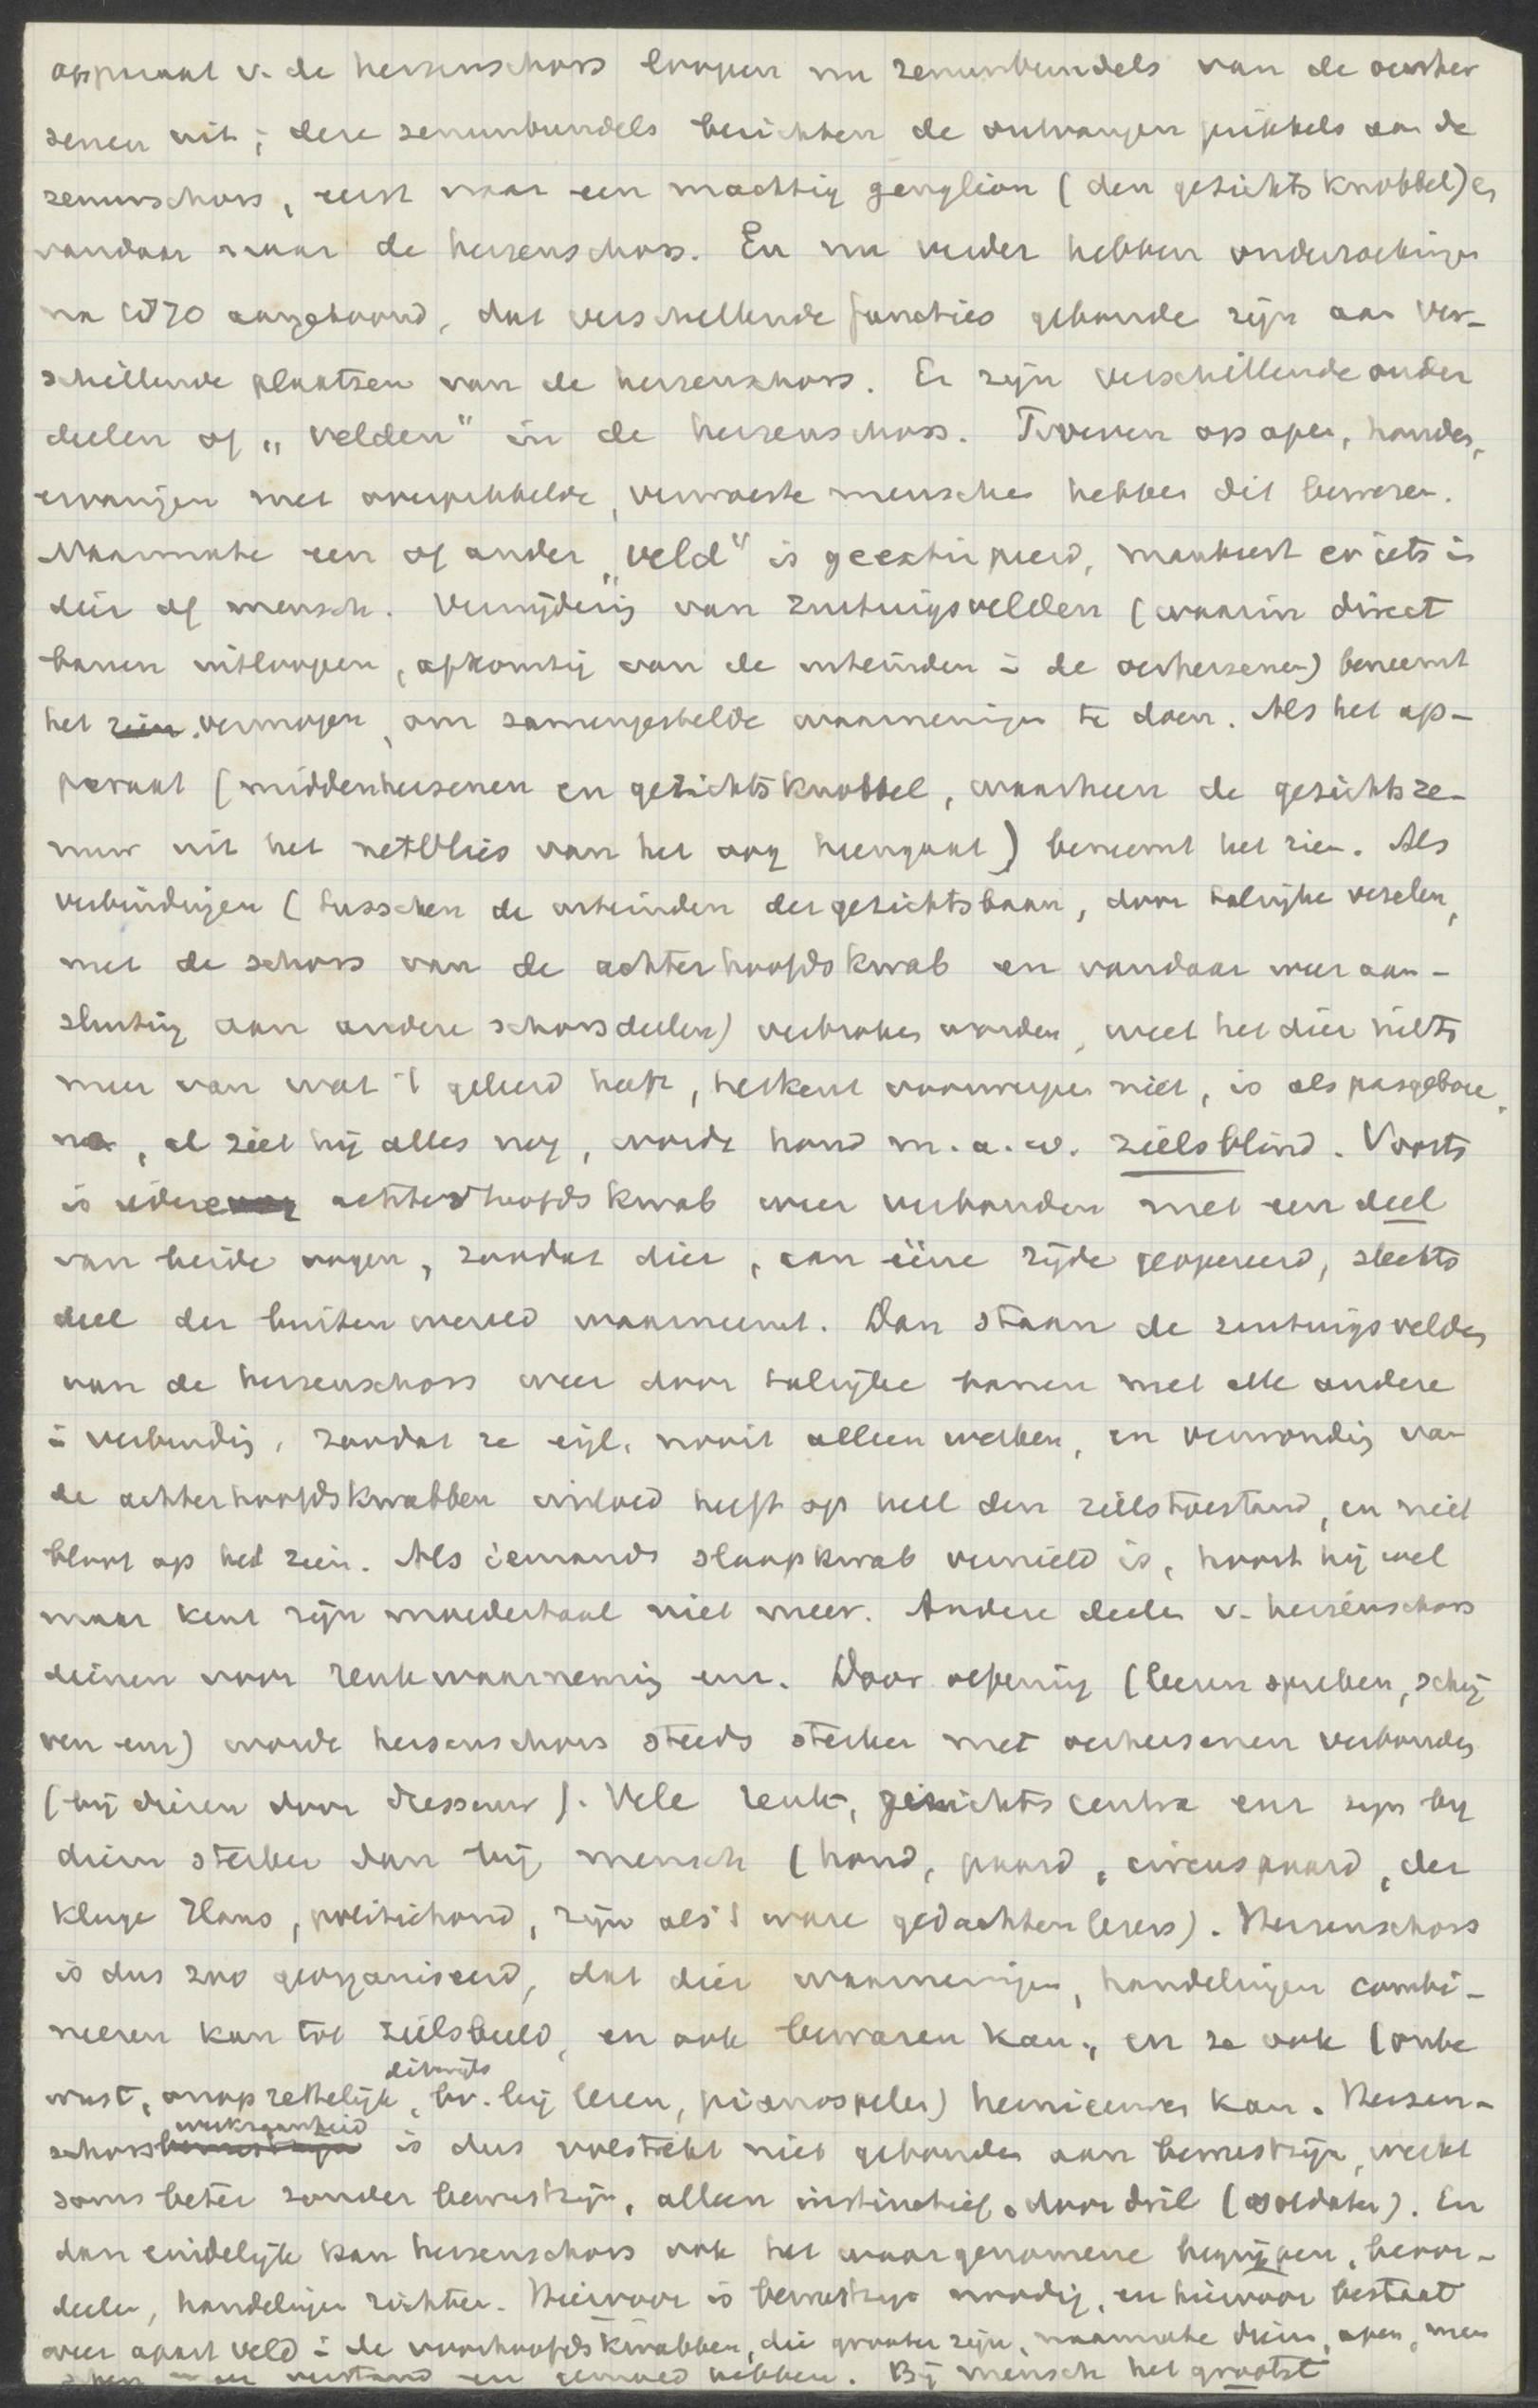 apparaat v. de hersenschors loopen nu zenuwbundels van de oerher
senen uit; deze zenuwbundels berichten de ontvangen prikkels aan de
zenuwschors, eerst naar een machtig ganglion (den gezichtsknobbel) en
vandaar naar de hersenschors. En nu verder hebben onderzoekingen
na 1870 aangetoond, dat verschillende functies gebonde zijn aan ver-
schillende plaatsen van de hersenschors. Er zijn verschillende onder
deelen of „velden" in de hersenschors. Proeven op apen, honden,
ervaringen met overprikkelde, verwoeste menschen hebben dit bewezen.
Naarmate een of ander „veld" is geextirpeerd, mankeert er iets in
dier of mensch. Verwijdering van zintuigsvelden (waarin direct
banen uitloopen, afkomstig van de uiteinden i. de oerhersenen) beneemt
het ~~zien~~ vermogen, om samengestelde waarnemingen te doen. Als het ap-
paraat (middenhersenen en gezichtsknobbel, waarheen de gezichtsze-
nuw uit het netvlies van het oog heengaat) beneemt het zien. Als
verbindingen (tusschen de uiteinden der gezichtsbaan, door talrijke vezelen,
met de schors van de achterhoofdskwab en vandaar weer aan-
sluiting aan andere schorsdeelen) verbroken worden, weet het dier niets
meer van wat 't geleerd heeft, herkent voorwerpen niet, is als pasgebore
ne, al ziet hij alles nog, wordt hond m.a.w. zielsblind. Voorts
is iedere achterhoofdskwab weer verbonden met een deel
van beide oogen, zoodat dier, aan ééne zijde geopereerd, slechts
deel der buitenwereld waarneemt. Dan staan de zintuigsvelden
van de hersenschors weer door talrijke banen met alle andere
i. verbinding, zoodat ze eigl. nooit alleen werken, en verwonding van
de achterhoofdskwabben invloed heeft op heel den zielstoestand, en niet
bloot op het zien. Als iemands slaapkwab vernield is, hoort hij wel
maar kent zijn moedertaal niet meer. Andere deelen v. hersenschors
dienen voor reukwaarneming enz. Door oefening (leeren spreken, schrij
ven enz) wordt hersenschors steeds sterker met oerhersenen verbonden
(bij dieren door dressuur). Vele reuk-, gezichtscentra enz zijn bij
dieren sterker dan bij mensch (hond, paard, circuspaard, der
kluge Hans, politiehond, zijn als 't ware gedachtenlezers). Hersenschors
is dus zoo georganiseerd, dat dier waarnemingen, handelingen combi-
neeren kan tot zielsbeeld, en ook bewaren kan, en ze ook (onbe
wust, onopzettelijk, dikwijls bv. bij lezen, pianospelen) hernieuwen kan. Hersen-
schors~~bewustzijn~~ werkzaamheid is dus volstrekt niet gebonden aan bewustzijn, werkt
soms beter zonder bewustzijn, alleen instinctief, door dril (soldaten). En
dan eindelijk kan hersenschors ook het waargenomene begrijpen, beoor-
deelen, handelingen richten. Hiervoor is bewustzijn noodig, en hiervoor bestaat
weer apart veld i. de voorhoofdskwabben, die grooter zijn, naarmate dieren, apen, men
schen meer verstand en gemoed hebben. Bij mensch het grootst